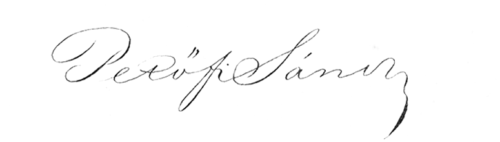 Petőfi Sándor